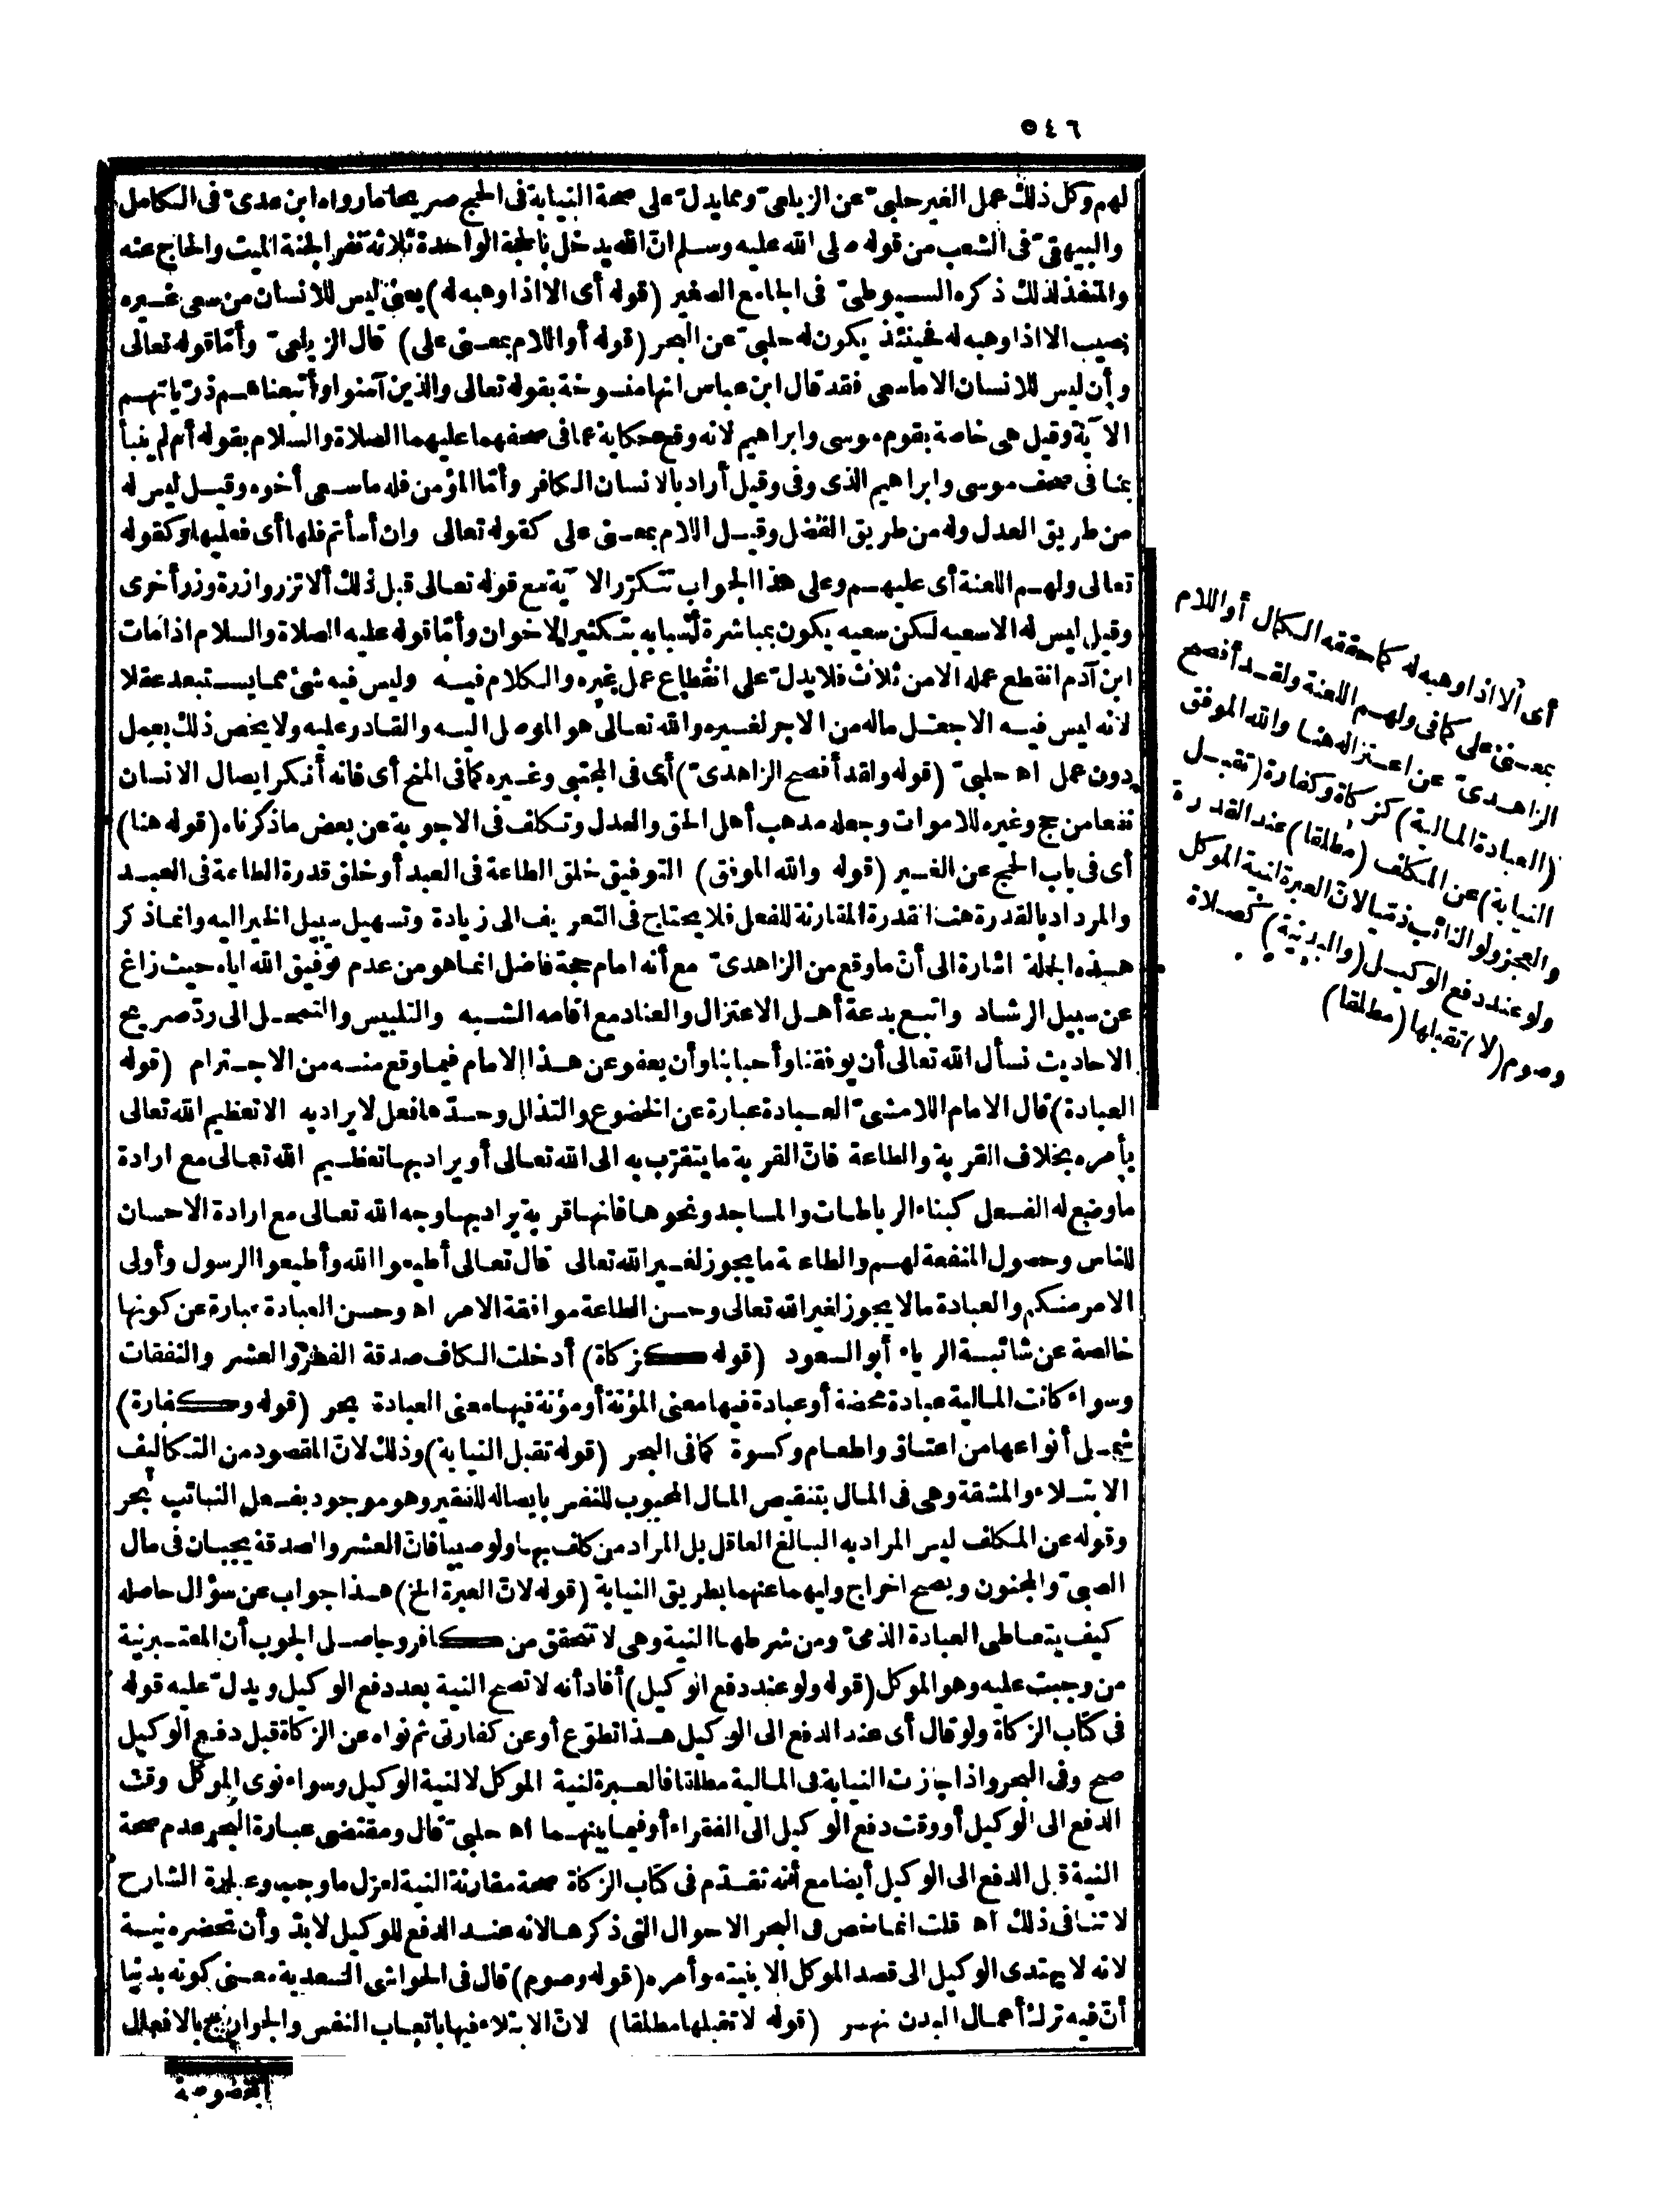 ٥٤٦
لهم وكل ذلك عمل الغير حلبى عن الزيلعى ومما يدل على صحة النيابة فى الحج صريحا ما رواه ابن عدى فى الكامل
والبيهقى فى الشعب من قوله صلى الله عليه وسلم ان الله يدخل بالحجة الواحدة ثلاثة نفر الجنة الميت والحاج عنه
والمنفذ لذلك ذكره السيوطى فى الجامع الصغير (قوله أى الا اذا وهبه له) يعنى ليس للانسان من سعى غيره
نصيب الا اذا وهبه له فحينئذ يكون له حلبى عن البحر (قوله أو اللام بمعنى على) قال الزيلعى وأما قوله تعالى
وأن ليس للانسان الا ما سعى فقد قال ابن عباس انها منسوخة بقوله تعالى والذين آمنوا وأتبعناهم ذرياتهم
الآية وقيل هى خاصة بقوم موسى وابراهيم لانه وقع حكاية عما فى صحفهما عليهما الصلاة والسلام بقوله أم لم ينبأ
بما فى صحف موسى وابراهيم الذى وفى وقيل أراد بالانسان الكافر وأما المؤمن فله ما سعى أخوه وقيل ليس له
من طريق العدل وله من طريق الفضل وقيل اللام بمعنى على كقوله تعالى وان أسأتم فلها أى فعليها وكقوله
تعالى ولهم اللعنة أى عليهم وعلى هذا الجواب تتكرر الآية مع قوله تعالى قبل ذلك ألا تزر وازرة وزر أخرى
وقيل ليس له الا سعيه لكن سعيه يكون بمباشرة أسبابه بتكثير الاخوان وأما قوله عليه الصلاة والسلام اذا مات
ابن آدم انقطع عمله الا من ثلاث فلا يدل على انقطاع عمل غيره والكلام فيه وليس فيه شئ مما يستبعد عقلا
لانه ليس فيه الا جعل ماله من الاجر لغيره والله تعالى هو الموصل اليه والقادر عليه ولا يخص ذلك بعمل
دون عمل اه حلبى (قوله ولقد أفصح الزاهدى) أى فى المجتبى وغيره كما فى المنح أى فانه أنكر ايصال الانسان
نفعا من حج وغيره للاموات وجعله مذهب أهل الحق والعدل وتكلف فى الاجوبة عن بعض ما ذكرناه (قوله هنا)
أى فى باب الحج عن الغير (قوله والله الموفق) التوفيق خلق الطاعة فى العبد أو خلق قدرة الطاعة فى العبد
والمراد بالقدرة هنا القدرة المقارنة للفعل فلا يحتاج فى التعريف الى زيادة وتسهيل سبيل الخير اليه وانما ذكر
هذه الجملة اشارة الى أن ما وقع من الزاهدى مع أنه امام حجة فاضل انما هو من عدم توفيق الله اياه حيث زاغ
عن سبيل الرشاد واتبع بدعة أهل الاعتزال والعناد مع اقامه الشبه والتلبيس والتمحل الى رد صريح
الاحاديث نسأل الله تعالى أن يوفقنا وأحبابنا وأن يعفو عن هذا الامام فيما وقع منه من الاجترام (قوله
العبادة) قال الامام اللامشى العبادة عبارة عن الخضوع والتذلل وحدها فعل لا يراد به الا تعظيم الله تعالى
بأمره بخلاف القربة والطاعة فان القربة ما يتقرب به الى الله تعالى أو يراد بها تعظيم الله تعالى مع ارادة
ما وضع له الفعل كبناء الرباطات والمساجد ونحوها فانها قربة يراد بها وجه الله تعالى مع ارادة الاحسان
للناس وحصول المنفعة لهم والطاعة ما يجوز لغير الله تعالى قال تعالى أطيعوا الله وأطيعوا الرسول وأولى
الامر منكم والعبادة ما لا يجوز لغير الله تعالى وحسن الطاعة موافقة الامر اه وحسن العبادة عبارة عن كونها
خالصة عن شائبة الرياء أبو السعود (قوله كزكاة) أدخلت الكاف صدقة الفطر والعشر والنفقات
وسواء كانت المالية عبادة محضة أو عبادة فيها معنى المؤنة أو مؤنة فيها معنى العبادة بحر (قوله وكفارة)
شمل أنواعها من اعتاق واطعام وكسوة كما فى البحر (قوله تقبل النيابة) وذلك لان المقصود من التكاليف
الابتلاء والمشقة وهى فى المال بتنقيص المال المحبوب للنفس بايصاله للفقير وهو موجود بفعل النائب بحر
وقوله عن المكلف ليس المراد به البالغ العاقل بل المراد من كلف بها ولو صبيا فان العشر والصدقة يجبان فى مال
الصبى والمجنون ويصح اخراج وليهما عنهما بطريق النيابة (قوله لان العبرة الخ) هذا جواب عن سؤال حاصله
كيف يتعاطى العبادة الذمى ومن شرطها النية وهى لا تتحقق من كافر وحاصل الجوب أن المعتبر نية
من وجبت عليه وهو الموكل (قوله ولو عند دفع الوكيل) أفاد أنه لا تصح النية بعد دفع الوكيل ويدل عليه قوله
فى كتاب الزكاة ولو قال أى عند الدفع الى الوكيل هذا تطوع أو عن كفارتى ثم نواه عن الزكاة قبل دفع الوكيل
صح وفى البحر واذا جازت النيابة فى المالية مطلقا فالعبرة لنية الموكل لا لنية الوكيل وسواء نوى الموكل وقت
الدفع الى الوكيل أو وقت دفع الوكيل الى الفقراء أو فيما بينهما اه حلبى قال ومقتضى عبارة البحر عدم صحة
النية قبل الدفع الى الوكيل أيضا مع أنه تقدم فى كتاب الزكاة صحة مقارنة النية لعزل ما وجب وعبارة الشارح
لا تنافى ذلك اه قلت انما خص فى البحر الاحوال التى ذكرها لانه عند الدفع للوكيل لابد وأن تحضره نية
لانه لا يهتدى الوكيل الى قصد الموكل الا بنيته وأمره (قوله وصوم) قال فى الحواشى السعدية معنى كونه بدنيا
أن فيه ترك أعمال البدن نهر (قوله لا تقبلها مطلقا) لان الابتلاء فيها باتعاب النفس والجوارح بالافعال
المخصوصة
أى الا اذا وهبه له كما حققه الكمال أو اللام
بمعنى على كما فى ولهم اللعنة ولقد أفصح
الزاهدى عن اعتزاله هنا والله الموفق
(العبادة المالية) كزكاة وكفارة (تقبل
النيابة) عن المكلف (مطلقا) عند القدرة
والعجز ولو النائب ذميا لان العبرة لنية الموكل
ولو عند دفع الوكيل (والبدنية) كصلاة
وصوم (لا) تقبلها (مطلقا)